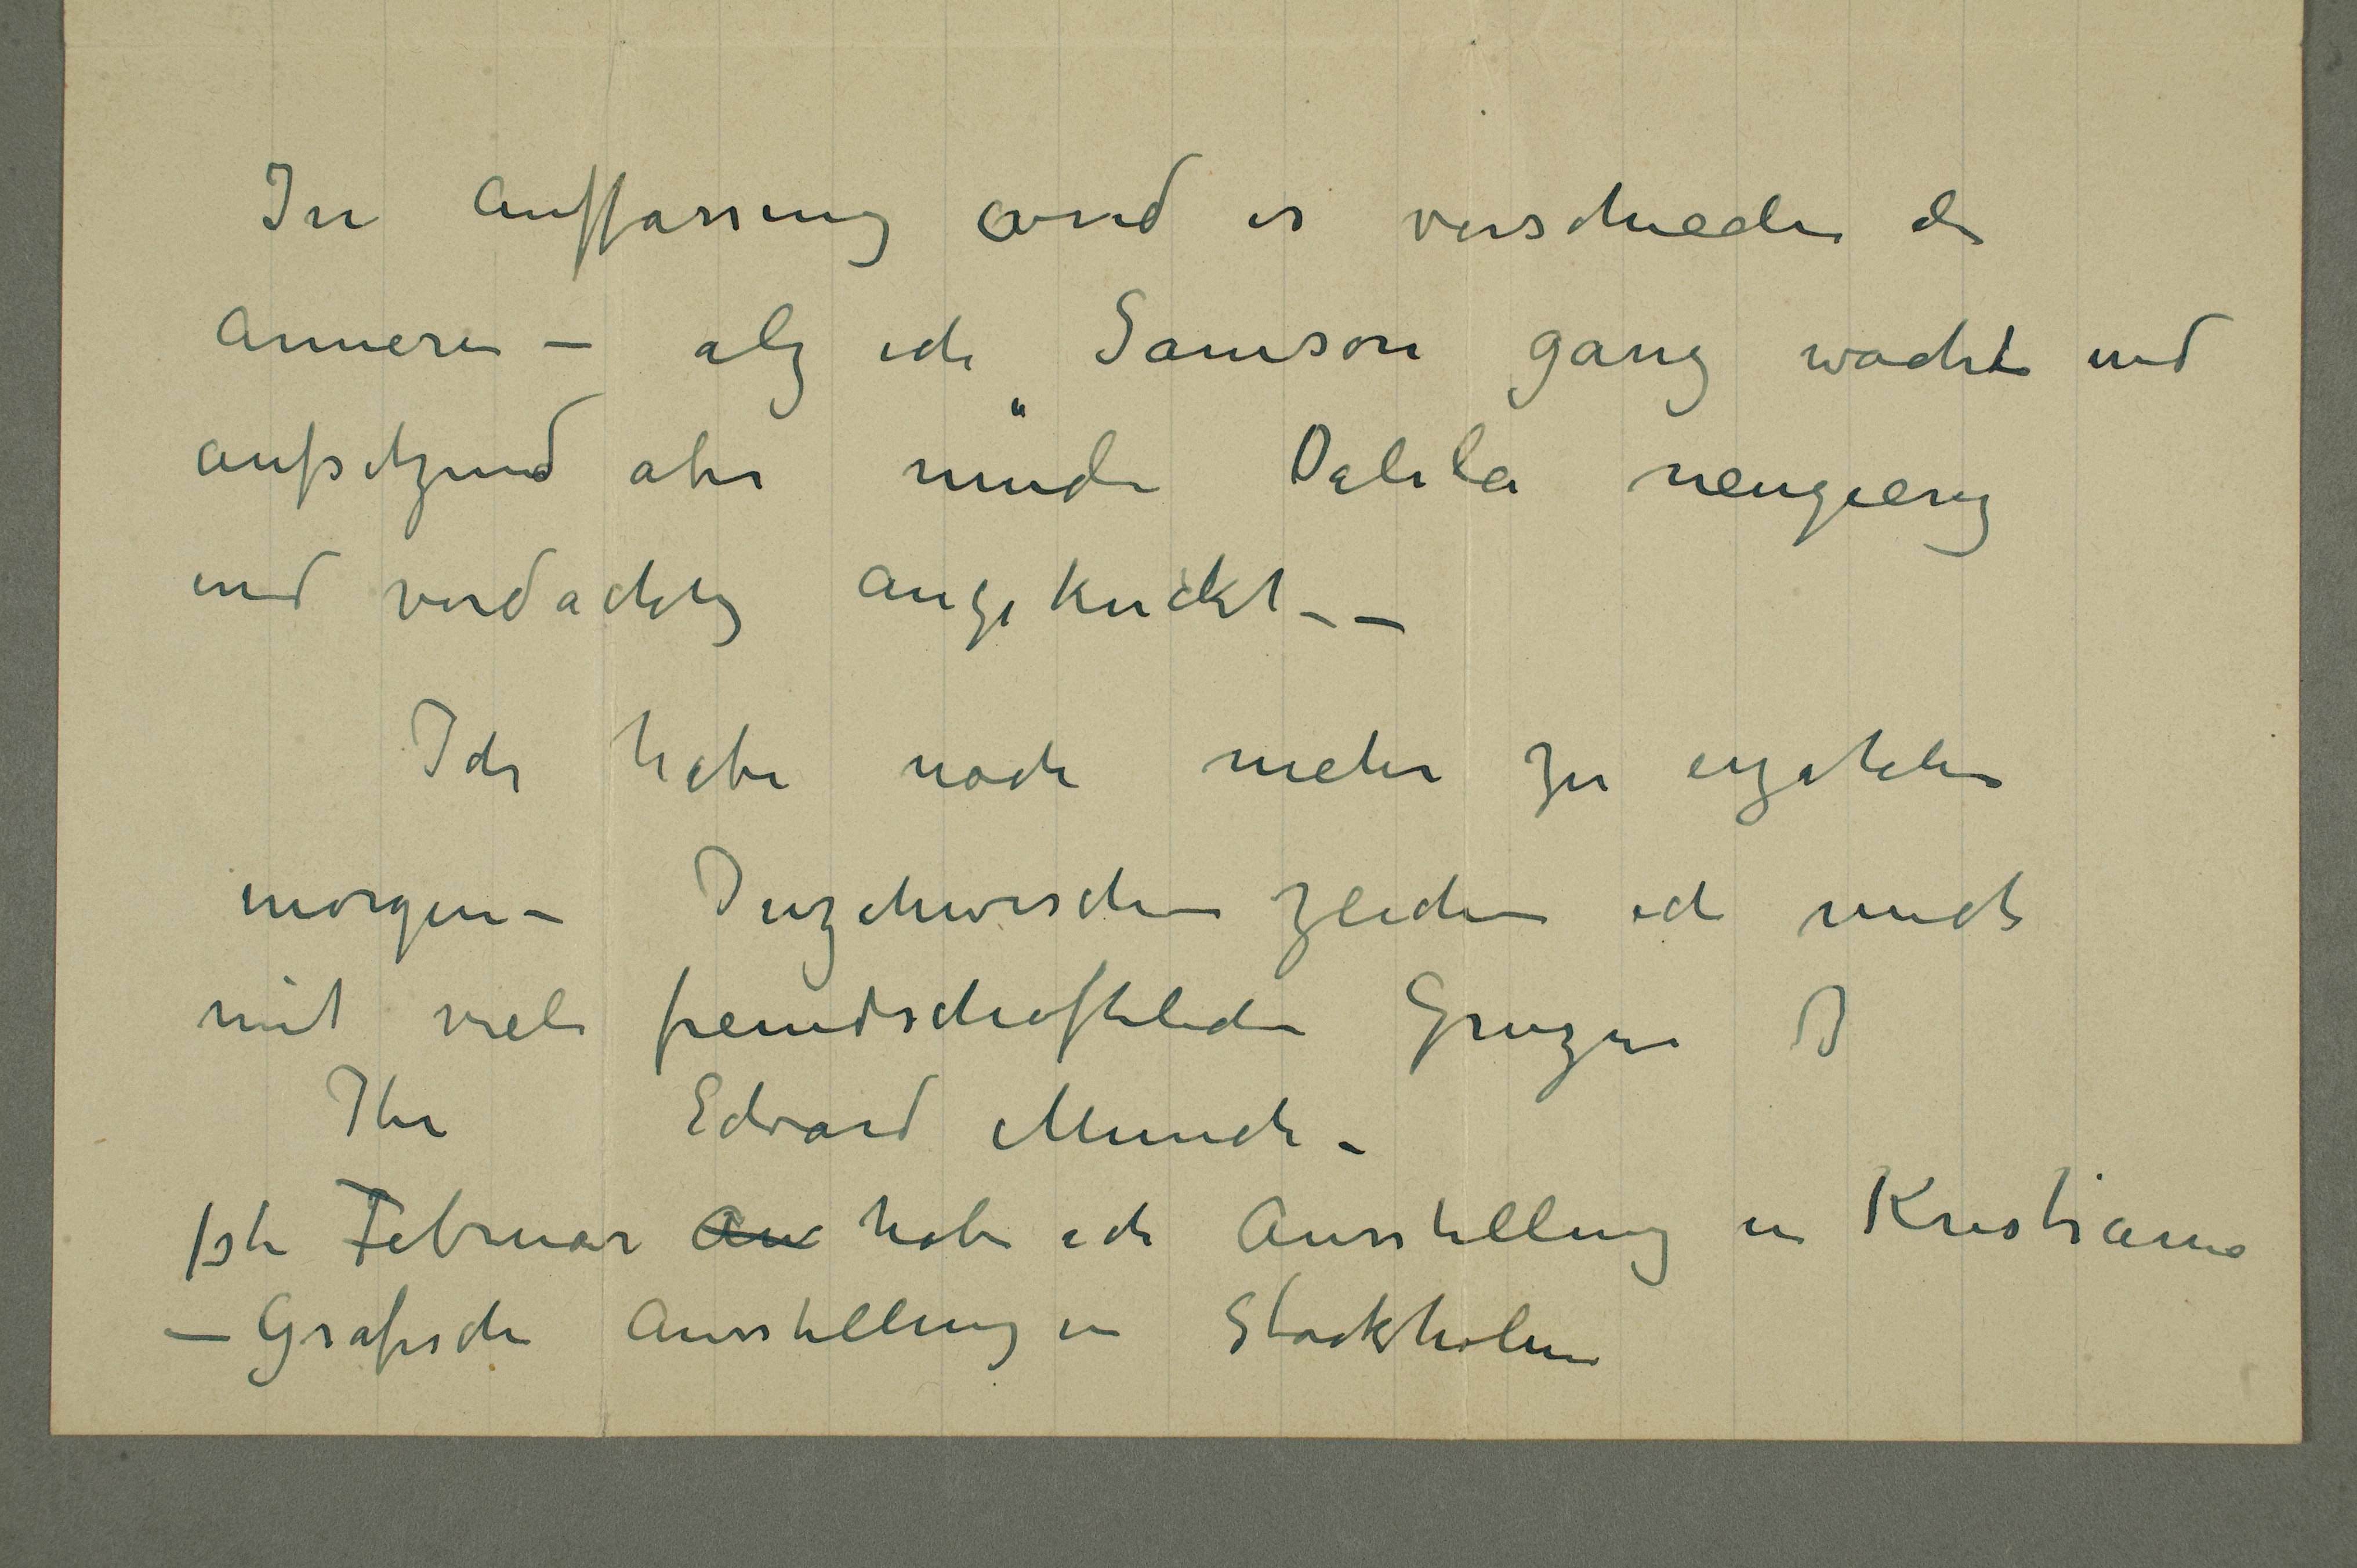 In Auffassung wird es verschieden die
Anneren – alz ich Samson ganz wacht und
aufsitzend aber müde Dalila neugierig
und verdachtig angekuckt – –
Ich habe noch mehr zu erzahlen
morgen – Inzchwischen zeichne ich mich
mit viele freundschaftlichen Gruzen I
Ihr Edvard Munch –
1ste Februar Au habe ich Ausstellung in Kristiania
– Grafische Ausstellung in Stockholm